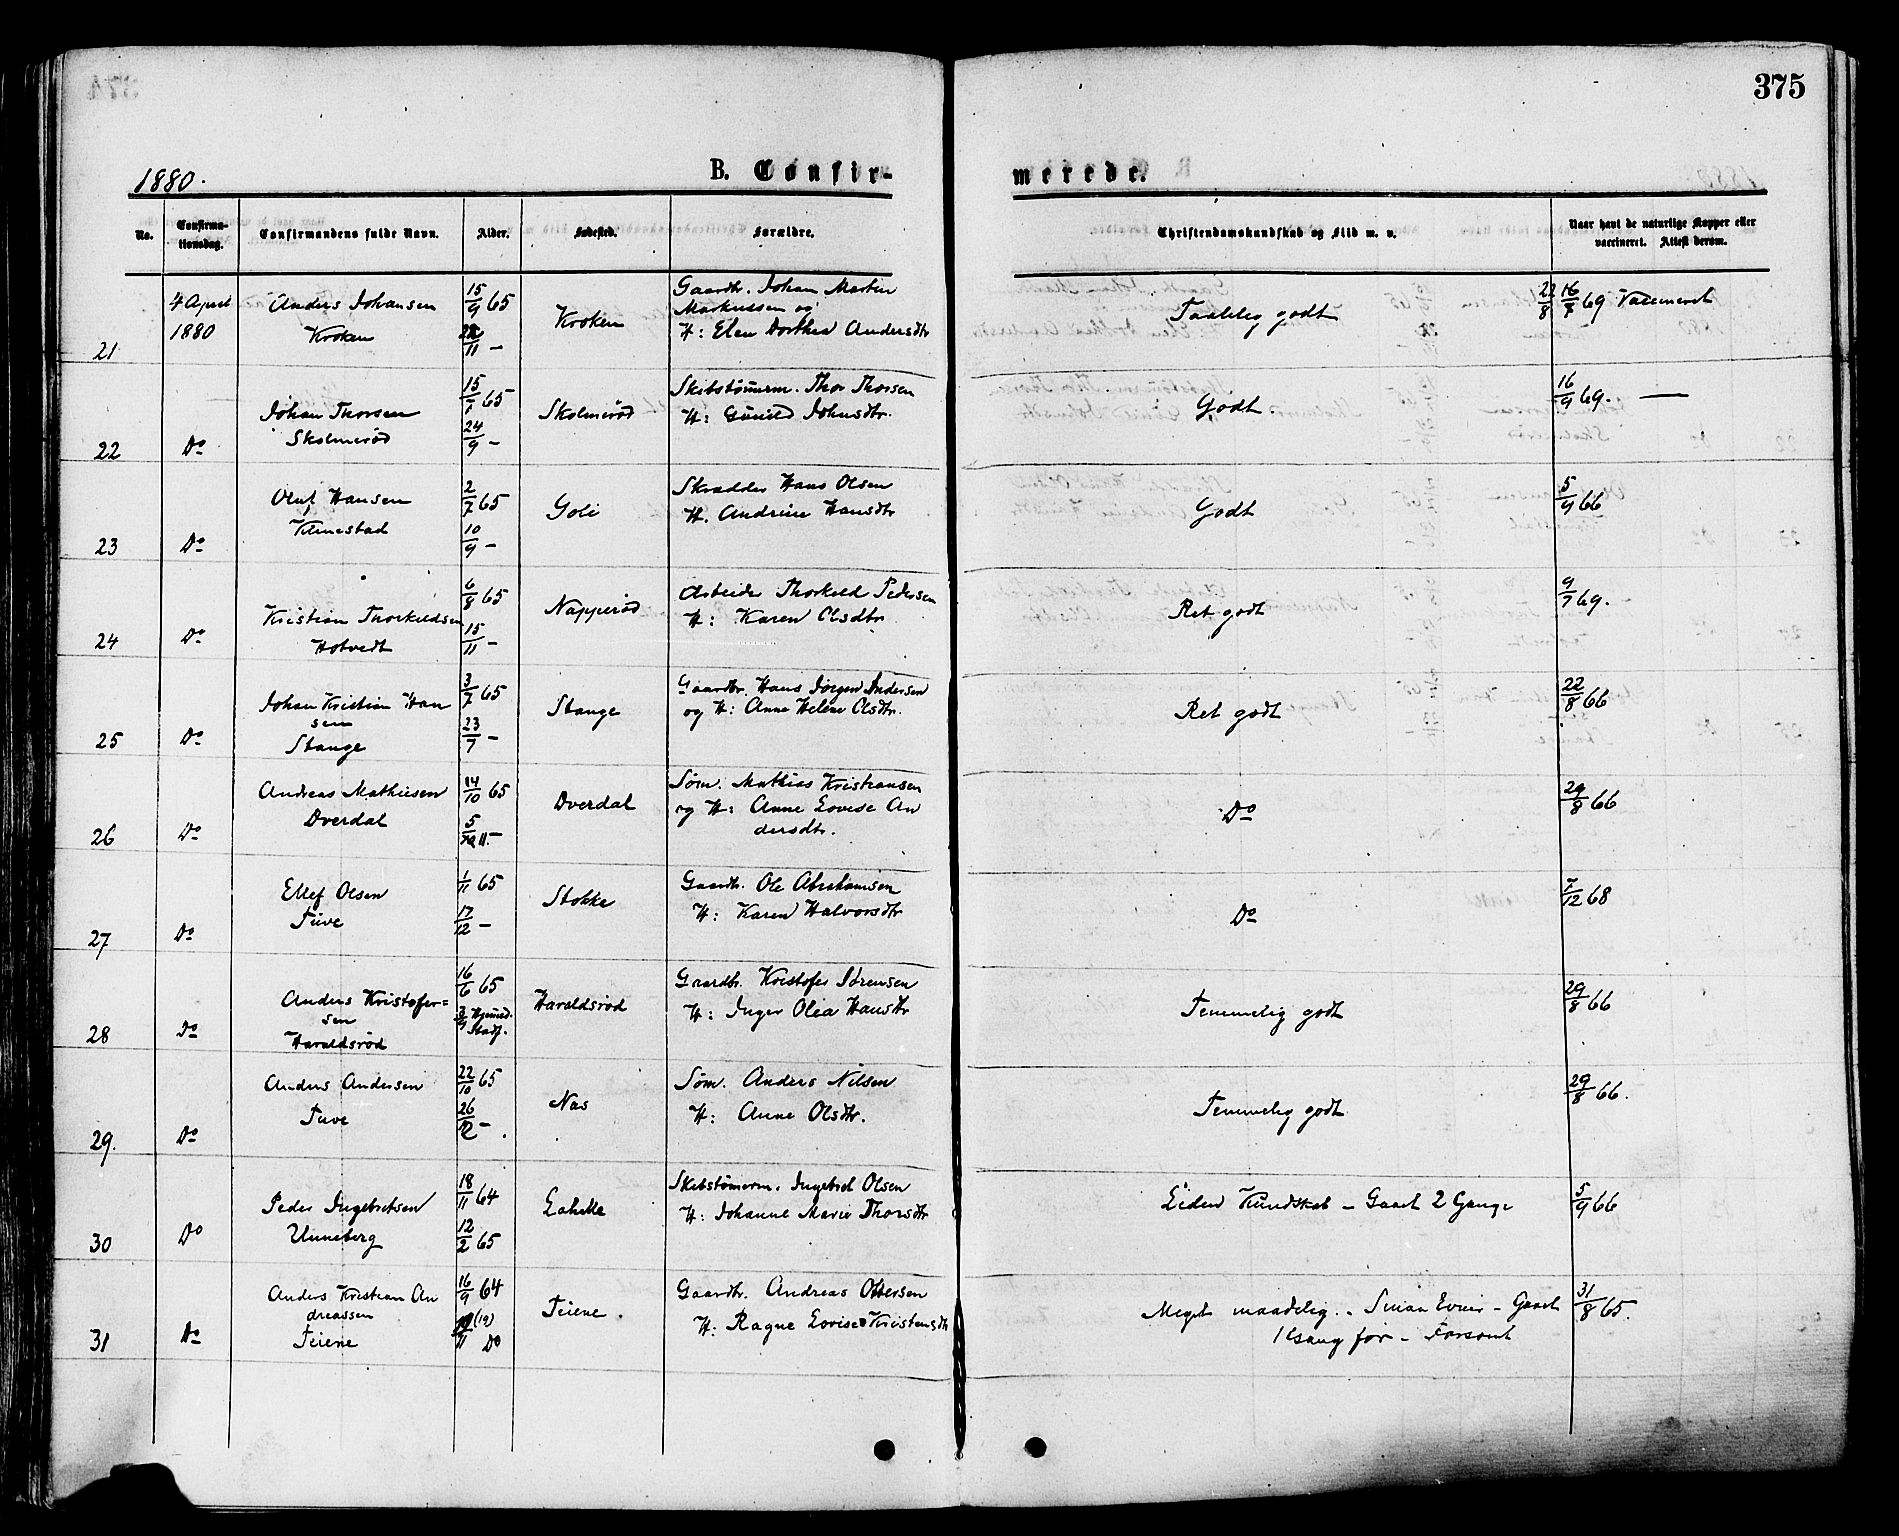 375
1880.
B. Confir-
merede.
No.
Confirma-
tionsdag.
Confirmandens fulde Navn.
Alder.
Fødested.
Forældre.
Christendomskundskab og Flid m. v.
Naar havt de naturlige Kopper eller
vaccineret. Attest derom.
21
4 April
1880
Anders Johansen
Kroken
15/9 65
11 –
Kroken
Gaardbr. Johan Martin
Markussen og
H: Elen Dorthea Andersdtr
Taalelig godt
22/8
69 Vaccineret
22
Do
Johan Thorsen
Skolmerød
65
24/9 –
Skolmerød
Skibstømerm. Thor Thorsen
H: Gunild Johnsdtr.
Godt.
16/9 69. —
23
Do
Oluf Hansen
Klinestad
2/7 65
10/9 –
Goli
Skrædder Hans Olsen
H. Andrine Hansdtr
Godt
5/9 66
24
Do
Kristian Thorkildsen
Hotvedt
6/8 65
15/11 –
Napperød
Arbeider Thorkild Pedersen
H: Karen Olsdtr
Ret godt
9/7 69.
25
Do
Johan Kristian Han
sen
Stange
3/7 65
23/7 –
Stange
Gaardbr. Hans Jørgen Andersen
og H: Anne Helene Olsdtr.
Ret godt
22/8 66
26
Do
Andreas Mathiesen
Dverdal
14/10 65
5
11 –
Dverdal
Søm. Mathias Kristiansen
og H: Anne Lovise An
dersdtr.
Do
29/8 66
27
Do
Ellef Olsen
Tuve
1/11 65
17/12 –
Stokke
Gaardbr. Ole Abrahamsen
H: Karen Halvorsdtr
Do
7/12 68
28
Do
Anders Kristofer=
sen
Haraldsrød
16/6 65
3/9 Hjemmed.
Stadf.
Haraldsrød
Gaardbr. Kristofer Sørensen
H: Inger Olea Hansdtr
Temmelig godt
29/8 66
29.
Do
Anders Andersen
Tuve
22/10 65
26/12 – .
Næs
Søm. Anders Nilsen
H: Anne Olsdtr.
Temmelig godt
29/8 66.
30
Do
Peder Ingebretsen
Unneberg
18/11 64
12/2 65
Skibstømerm. Ingebret Olsen
H: Johanne Marie Thorsdtr
Liden Kundskab – Gaaet 2 Gange
5/9 66
31
Do
Anders Kristian An
dreassen
Teiene
16/9 64
(19)
11 Do
Teiene.
Gaardbr. Andreas Ottersen
H: Ragne Lovise Kristensdtr
Meget maadelig. – Smaa Evner – Gaaet
1 Gang før – Forsømt
31/8 65.